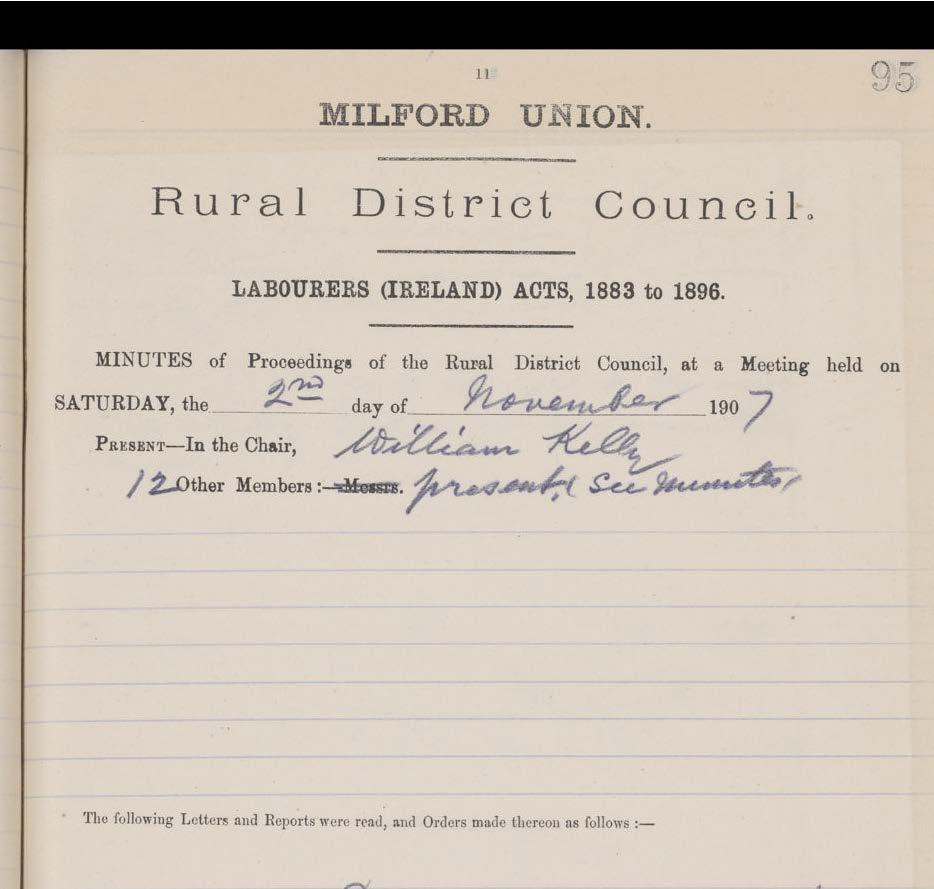 11
95
MILFORD UNION.
Rural District Council.
LABOURERS (IRELAND) ACTS, 1883 to 1896.
MINUTES of Proceedings of the Rural District Council, at a Meeting held on
SATURDAY, the 2nd day of November 1907
PRESENT—In the Chair, William Kelly
12 Other Members:—Messrs. present, (See Minutes,
The following Letters and Reports were read, and Orders made thereon as follows :—